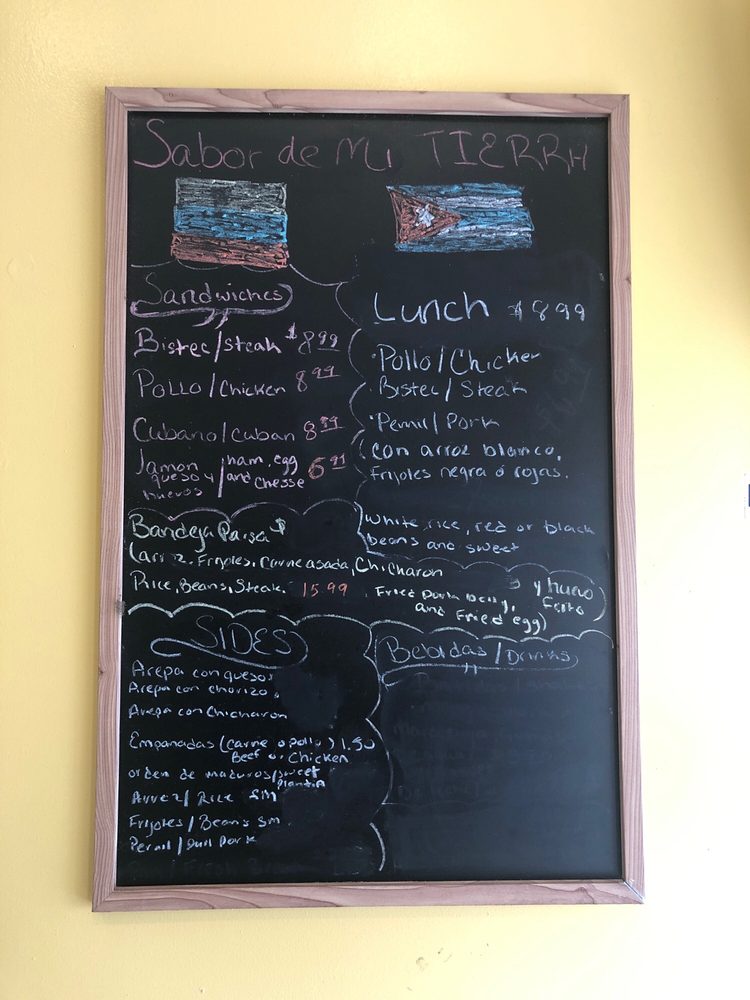 Sabor de Mi TIERRA
Sandwiches
Bistec/Steak $8.99
POLLO/Chicken 8.99
Cubano/Cuban 8.99
Jamon queso y huevos / ham, egg and chesse 6.99
Lunch $8.99
Pollo/Chicken
Bistec/Steak
Pernil/Pork
con arroz blanco,
Frijoles negra ó rojas.
White rice, red or black
beans and sweet
Bandeja Paisa $
(arroz, Frijoles, Carne asada, Chicharon
y huevo Frito)
Rice, Beans, Steak. 15.99 Fried Pork belly,
and Fried egg)
SIDES
Arepa con queso
Arepa con chorizo
Arepa con Chicharon
Empanadas (carne o pollo) 1.50
Beef or Chicken
orden de maduros/sweet
plantin
Arroz/Rice SM
Frijoles/Beans SM
Pernil/Pull Pork
Bebidas/Drinks